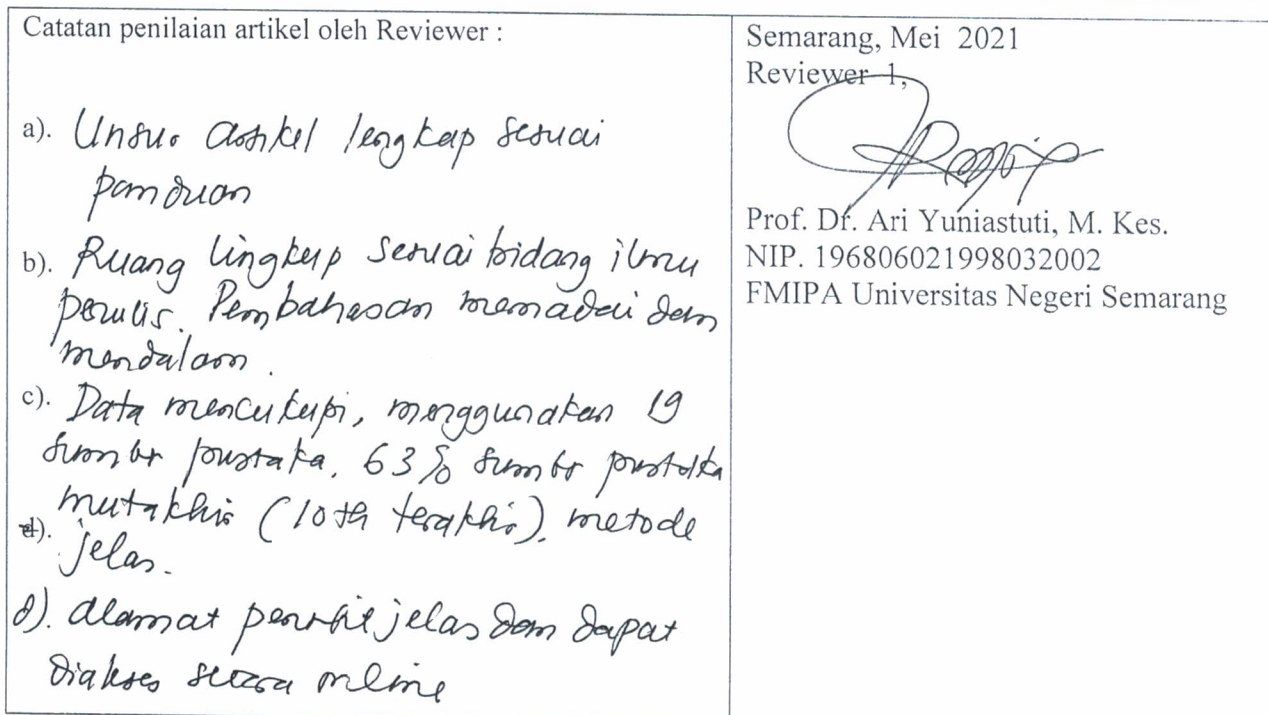 Catatan penilaian artikel oleh Reviewer :
a). Unsur artikel lengkap sesuai
panduan
b). Ruang lingkup sesuai bidang ilmu
penulis. Pembahasan memadai dan
mendalam.
c). Data mencukupi, menggunakan 19
sumber pustaka. 63% sumber pustaka
mutakhir (10 th terakhir). metode
d). jelas.
d). alamat penerbit jelas dan dapat
diakses secara online
Semarang, Mei 2021
Reviewer 1,
Prof. Dr. Ari Yuniastuti, M. Kes.
NIP. 196806021998032002
FMIPA Universitas Negeri Semarang